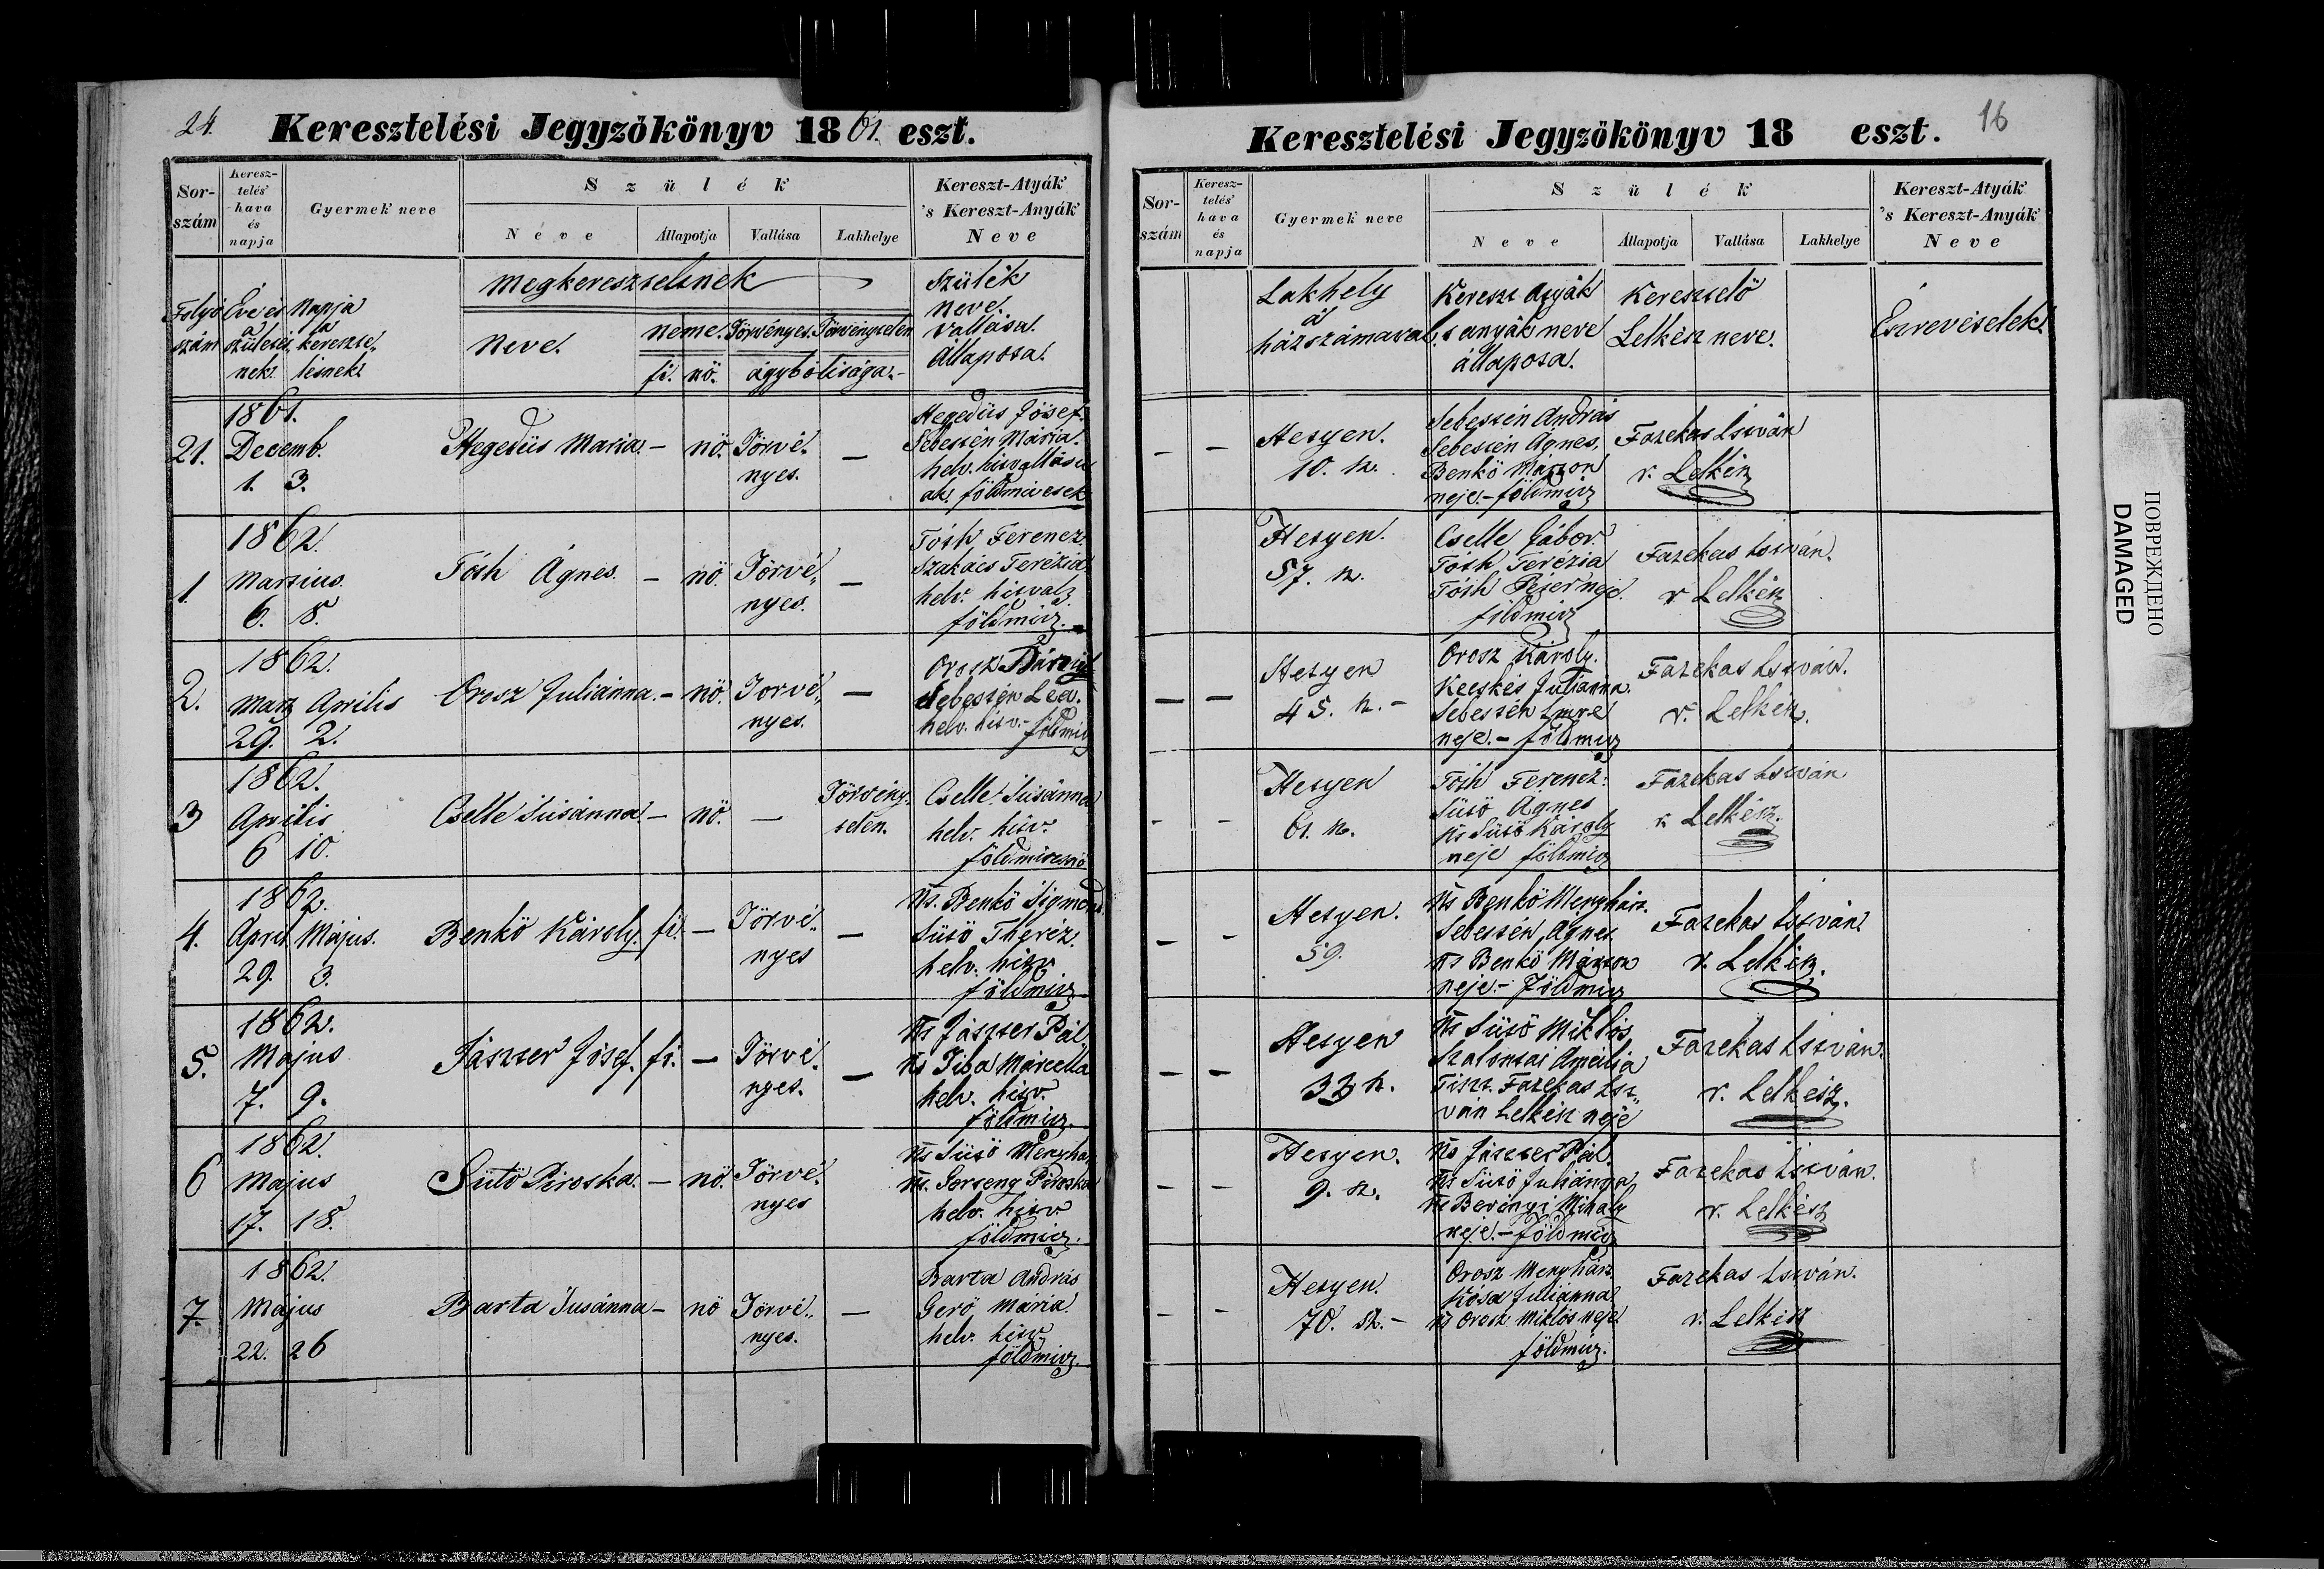 24.
Keresztelési Jegyzőkönyv 1861. eszt.
Sor-szám
Keresz-telés' hava és napja
Gyermek neve
Szülék
Neve
Állapotja
Vallása
Lakhelye
Kereszt-Atyák 's Kereszt-Anyák Neve
Folyó szám
Éve és Napja
a születés, a keresztelésnek
nek
megkereszteltnek
Neve.
neme.
fi. nö.
Törvényes. Törvénytelen
ágybólisága.
Szülék
neve.
vallása.
állapota.
21.
1861.
Decemb.
1. 3.
Hegedüs Maria. – nö. Törvé-
nyes. –
Hegedüs Jósef.
Sebestén Mária.
helv. hitvallásu
ak. földmivesek
1.
1862.
Martzius.
6. 8.
Tóth Ágnes. – nö. Törvé-
nyes. –
Tóth Ferencz.
Szakács Terézia
helv. hitvalz.
földmivz.
2.
1862.
Martz Aprilis
29. 2.
Orosz Juliánna. – nö. Törvé-
nyes. –
Orosz
Sebestén Lea.
helv. hitv. – földmivz
3
1862.
Aprilis
6 10.
Cselle Susánna. – nö. –
Törvény-
telen.
Cselle Susánna
helv. hitv.
földmivesnö
4.
1862.
April Május.
29. 3.
Benkö Károly. fi. – Törvé-
nyes –
Ns. Benkö Sigmond
Sütö Theréz.
helv. hitv
földmivz
5.
1862.
Május
7. 9.
Jászter Jósef. fi. – Törvé-
nyes. –
Ns Jászter Pál
Ns Tiba Marcella
helv. hitv.
földmivz.
6
1862.
Május
17. 18.
Sütö Piroska. – nö. Törvé-
nyes
Ns Sütö Menyhár
Ns. Piroska
helv. hitv.
földmivz.
7.
1862.
Május
22. 26
Barta Susánna – nö Törvé-
nyes. –
Barta András
Gerö Mária.
helv. hitv
földmivz.
16
Keresztelési Jegyzőkönyv 18 eszt.
Sor-szám
Keresz-telés' hava és napja
Gyermek neve
Szülék
Neve
Állapotja
Vallása
Lakhelye
Kereszt-Atyák 's Kereszt-Anyák Neve
Lakhely
házszámaval.
Kereszt Atyák
s anyák neve
állapota.
Keresztelő
Lelkész neve.
Észrevételek.
– – Hetyen.
10. sz.
Sebestén András
Sebestén Ágnes,
Benkö Marton
neje. – földmivz
Fazekas István
r. Lelkész
Hetyen.
57. sz.
Cselle Gábor.
Tóth Terézia
Tóth Péter neje.
földmivz
Fazekas István.
r Lelkész
– – Hetyen
45. sz. –
Orosz Károly.
Kecskés Julianna.
Sebestén Imre
neje. – földmivz
Fazekas István.
r. Lelkész.
– – Hetyen
61. sz.
Tóth Ferencz.
Sütö Ágnes
Ns Sütö Károly
neje földmivz
Fazekas István
r. Lelkész.
– – Hetyen.
59.
Ns Benkö Menyhárt.
Sebestén Ágnes
Ns Benkö Márton
neje. – földmivz
Fazekas István
r. Lelkész.
– – Hetyen
33 sz.
Ns Sütö Miklós
Szalontai Amália
Tiszt. Fazekas Ist-
ván Lelkész neje
Fazekas István.
r. Lelkész.
– – Hetyen.
9. sz.
Ns Jászter Pál.
Ns Sütö Juliánna,
Ns Berényi Mihály
neje. – földmivz
Fazekas István.
r. Lelkész
– – Hetyen.
70. sz. –
Orosz Menyhárt
Kósa Juliánna
Ns Orosz Miklós neje
földmivz.
Fazekas István.
r. Lelkész
ПОВРЕЖДЕНО
DAMAGED